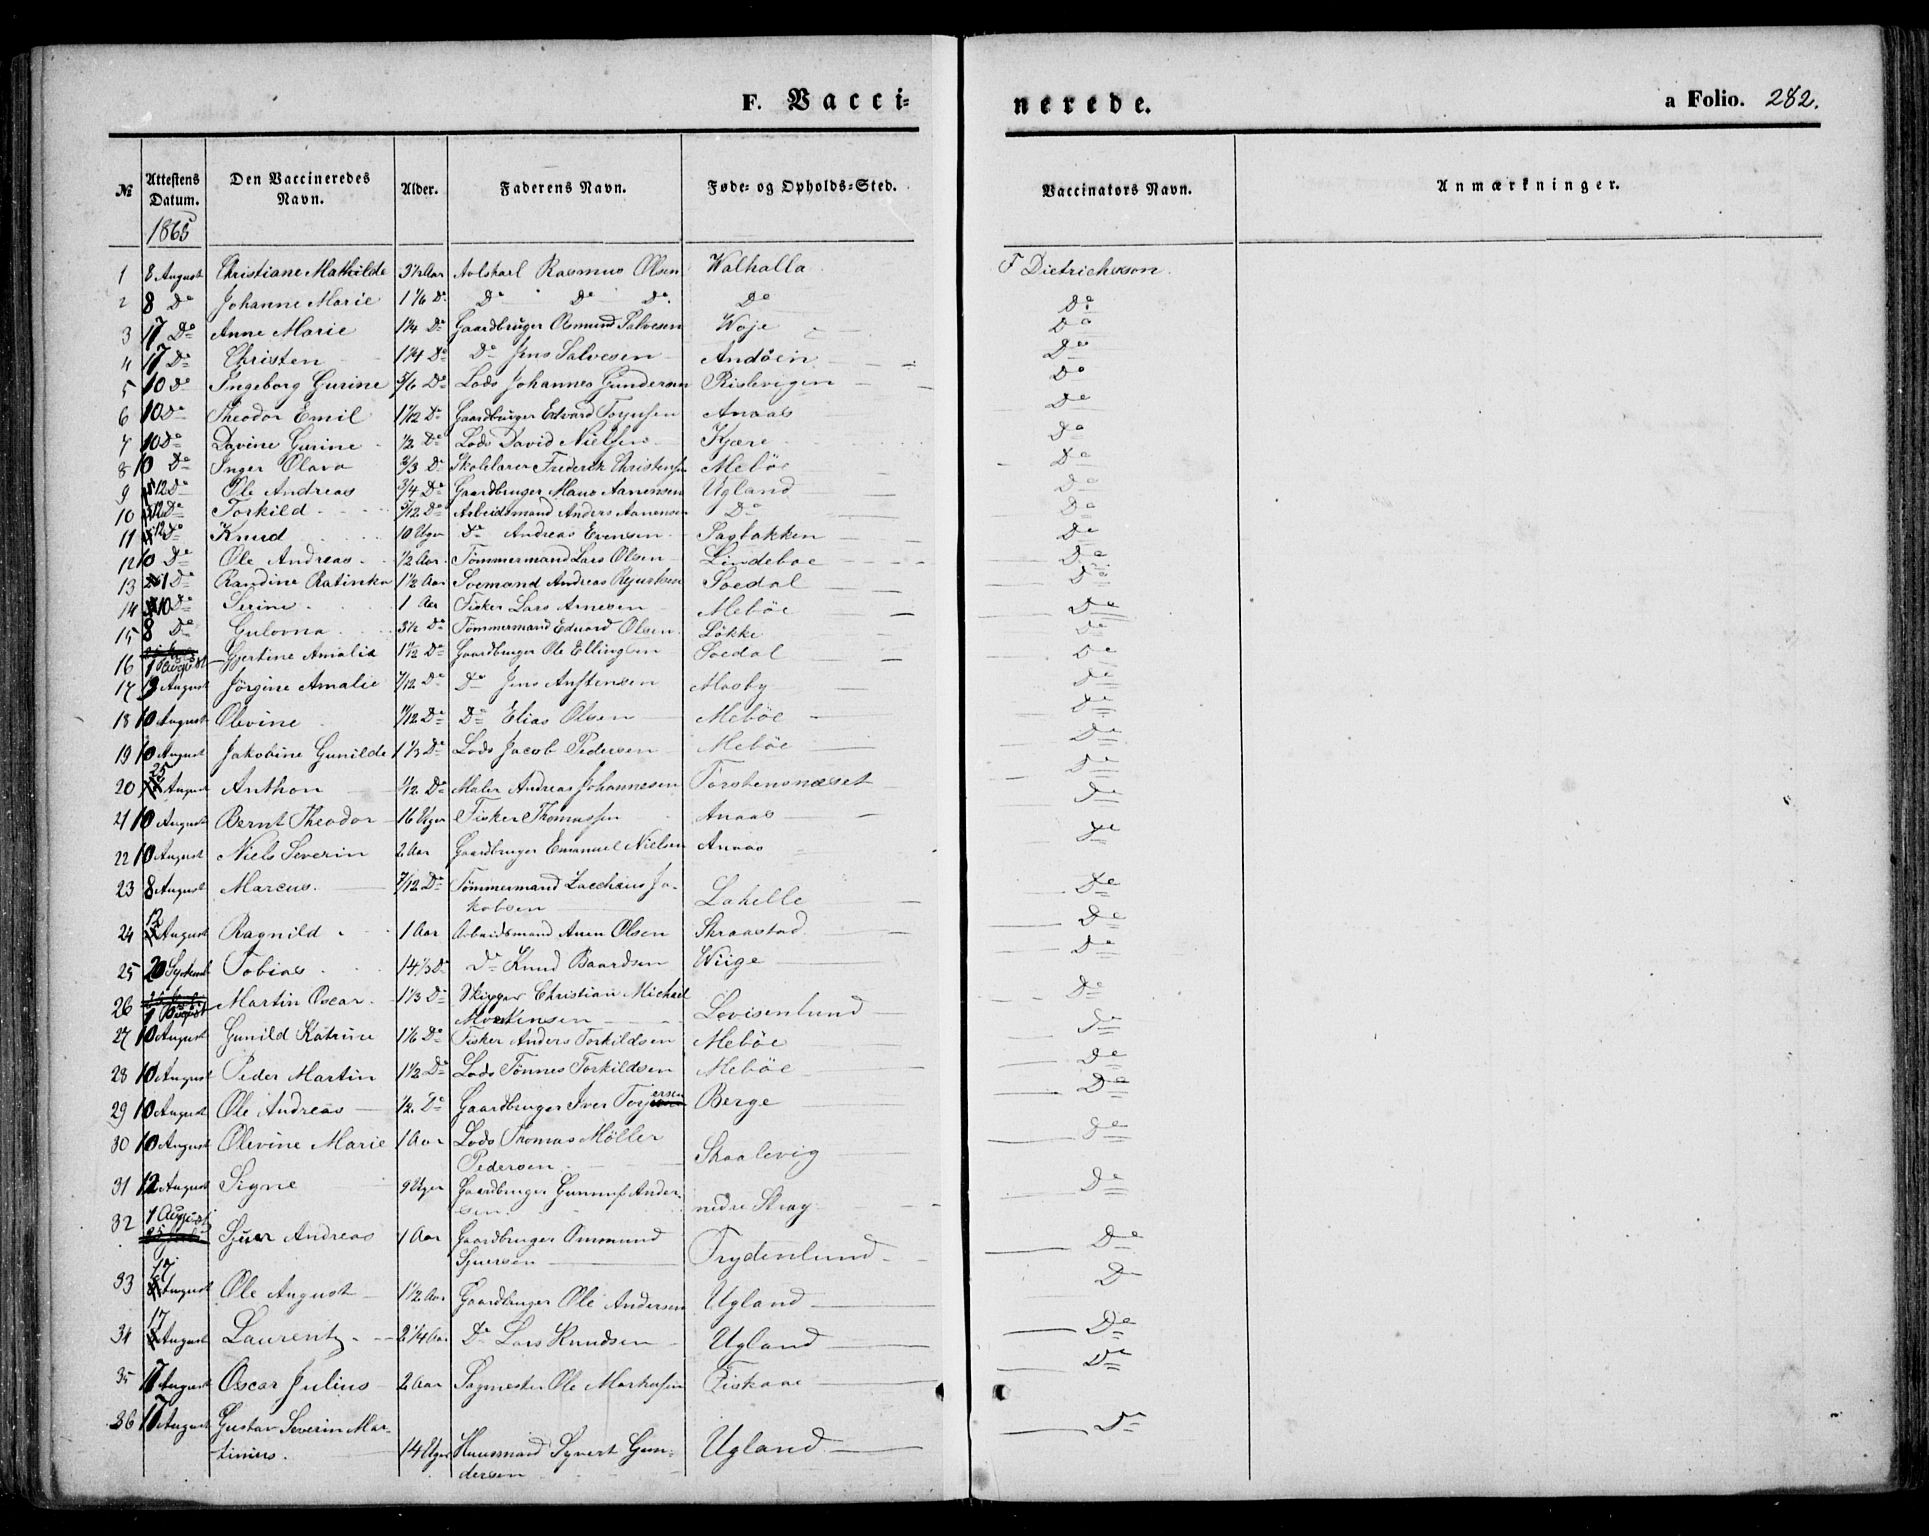 F. Vacci-
nerede.
a Folio. 282.
№
Attestens Datum.
Den Vaccineredes Navn.
Alder.
Faderens Navn.
Føde- og Opholds-Sted.
Vaccinators Navn.
Anmærkninger.
1865
1 8 August Christiane Mathilde 3½ Aar Rasmus Olsen Walhalla F Dietrichson.
2 8 De Johanne Marie 1 1/6 De De De De De De
3 17 De Anne Marie 1¼ De Gaardbruger Osmund Salvesen Woje De
4 17 De Christen 1¼ De De Jens Salvesen Andøen De
5 10 De Ingeborg Gurine 5/6 De Lods Johannes Gundersen Rislevigen De
6 10 De Theodor Emil 1 1/12 De Gaardbruger Edvard Torjusen Anaas De
7 10 De Davine Gurine ½ De Lods David Nielsen Kjære De
8 10 De Inger Olava 2/3 De Skolelærer Frederik Christensen Mebøe De
9 12 De Ole Andreas 3/4 De Gaardbruger Aanensen Ugland De
10 12 De Torkild 5/12 De Arbeidsmand Anders Aanensen De De
11 12 De Knud 10 Uger De Andreas Evensen Sagbakken De
12 10 De Ole Andreas ½ Aar Tømmermand Lars Olsen Lindeboe De
13 1 De Randine Ratinka 1½ Aar Soemand Andreas Soedal De
14 10 De Serine 1 Aar Fisker Lars Arnesen Mebøe De
15 8 De Gulovna 3½ De Tømmermand Edvard Olsen Løkke De
16 1 August Gjertine Amalia 1 1/12 De Gaardbruger Ole Ellingsen Soedal De
17 3 August Jörgine Amalie 7/12 De De Jens Anstensen Mosby De
18 10 August Olevine 11/12 De De Elias Olsen Mebøe De
19 10 August Jakobine Gunilde 1 1/3 De Lods Jacob Pedersen Mebøe De
20 25 August Anthon 1/12 De Maler Andreas Johannesen Torstensnæset De
21 10 August Bernt Theodor 16 Uger Fisker Thomassen Anaas De
22 10 August Niels Severin 2 Aar Gaardbruger Emanuel Nielsen Anaas De
23 8 August Marcus 7/12 De Tømmermand Zacchæus Ja-
kobsen Lahelle De
24 12 August Ragnild 1 Aar Arbeidsmand Anen Olsen Skraastad De
25 20 Septemb Tobias 14 1/3 De De Knud Baardsen Wiige De
26 1 August Martin Oscar 1 1/3 De Skipper Christian Michael
Mortensen Lovisenlund De
27 10 August Gunild Katrine 1 1/6 De Fisker Anders Torkildsen Mebøe De
28 10 August Peder Martin 1½ De Lods Tønnes Torkildsen Mebøe De
29 10 August Ole Andreas ½ De Gaardbruger Iver Torjersen Berge De
30 10 August Olevine Marie 1 Aar Lods Thomas Möller
Pedersen Skaalevig De
31 12 August Signe 9 Uger Gaardbruger Gunnuf Ander-
sen nedre Stray De
32 1 August Sjuer Andreas 1 Aar Gaardbruger Ommund
Sjuersen Frydenlund De
33 17 August Ole August 1½ Aar Gaardbruger Ole Andersen Ugland De
34 17 August Laurentz 2¼ Aar De Lars Knudsen Ugland De
35 17 August Oscar Julius 2 Aar Sagmester Ole Markusen Fiskaae De
36 17 August Gustav Severin Mar-
tinius. 14 Uger Huusmand Syvert Gun-
dersen Ugland De